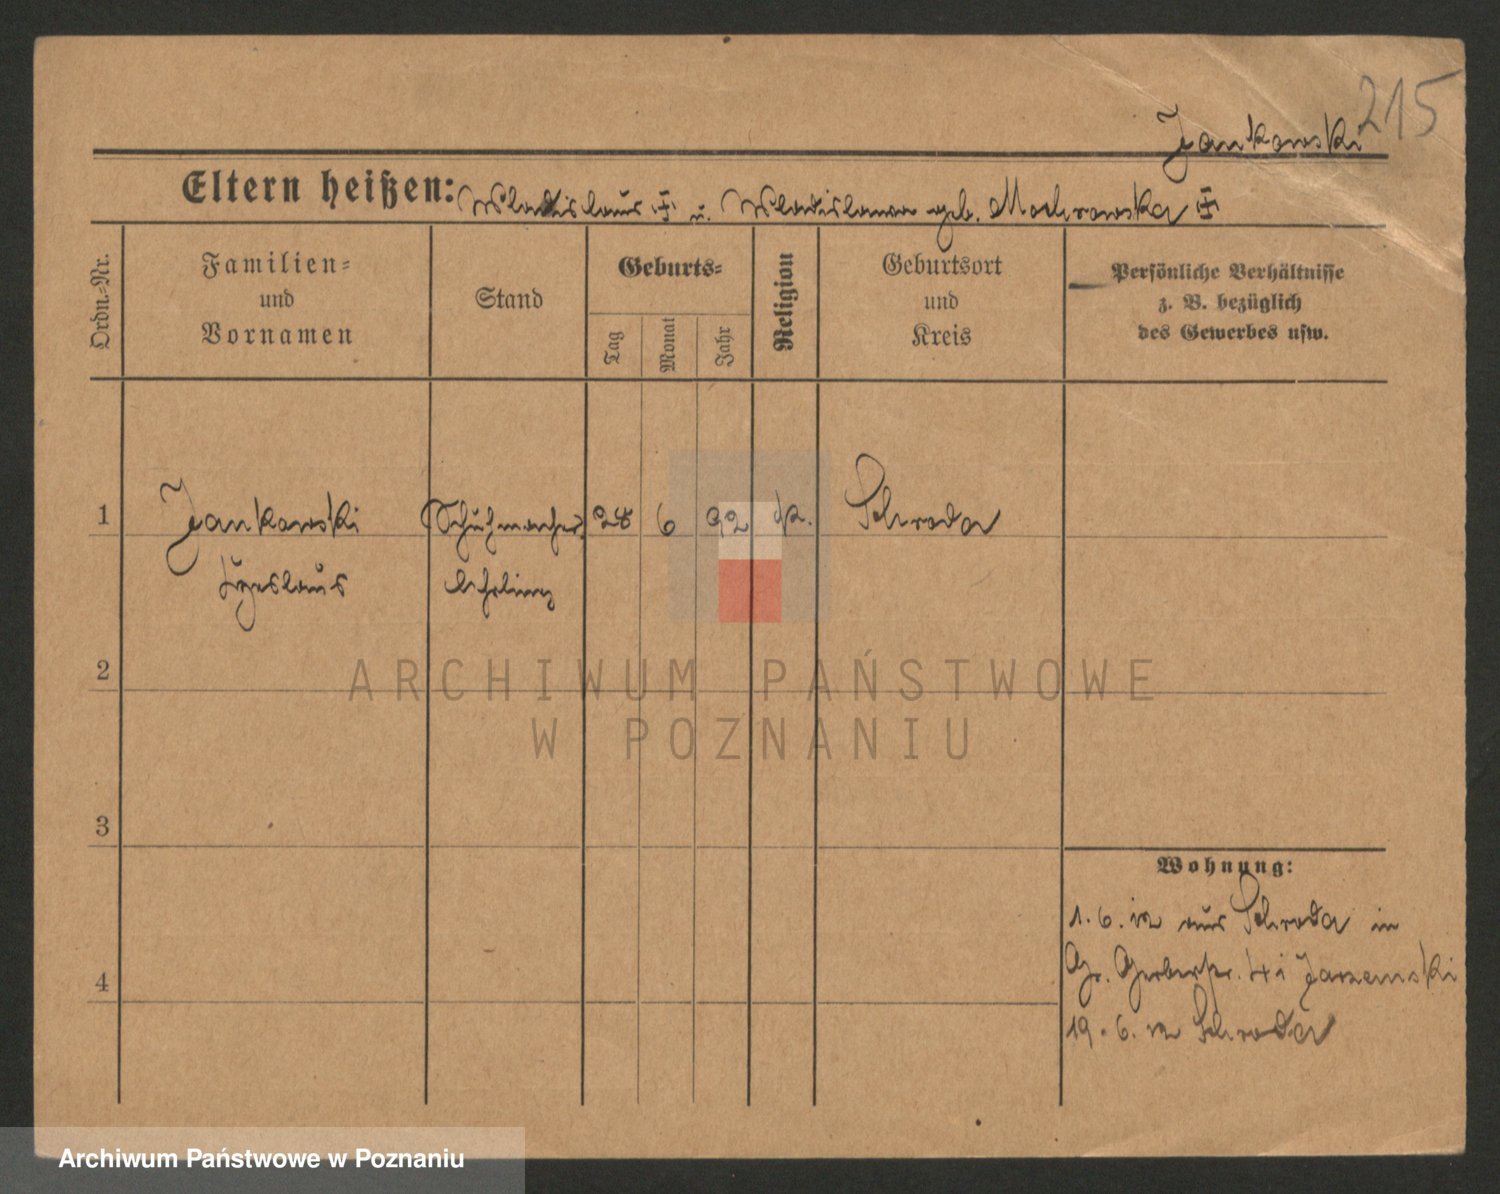 215
Jankowski
Eltern heißen: Wladislaus u. Wladislawa geb. Mochrowska
Ordn.=Nr.
Familien=
und
Vornamen
Stand
Geburts=
Tag
Monat
Jahr
Religion
Geburtsort
und
Kreis
Persönliche Verhältnisse
z. B. bezüglich
des Gewerbes usw.
1 Jankowski Schuhmacher 28 6 92 k. Schroda
lehrling
2
3
4
Wohnung:
1. 6. aus Schroda in
Gr. Gerberstr. Jarzemski
19. 6. Schroda
ARCHIWUM PAŃSTWOWE
W POZNANIU
Archiwum Państwowe w Poznaniu